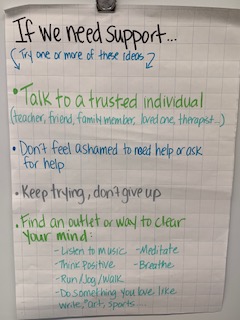 If we need support...
(Try one or more of these ideas)
• Talk to a trusted individual
(teacher, friend, family member, loved one, therapist...)
• Don't feel ashamed to need help or ask
for help
• Keep trying, don't give up
• Find an outlet or way to clear
your mind:
- Listen to music - Meditate
- Think Positive - Breathe
- Run/Jog/Walk
- Do something you love like
write, art, sports